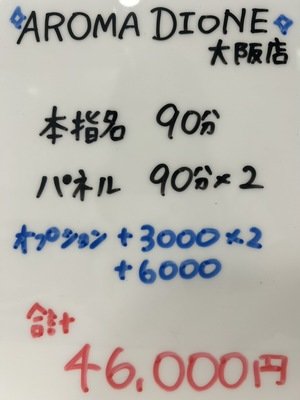 AROMA DIONE
大阪店
本指名 90分
パネル 90分×2
オプション +3000×2
+6000
合計
46,000円